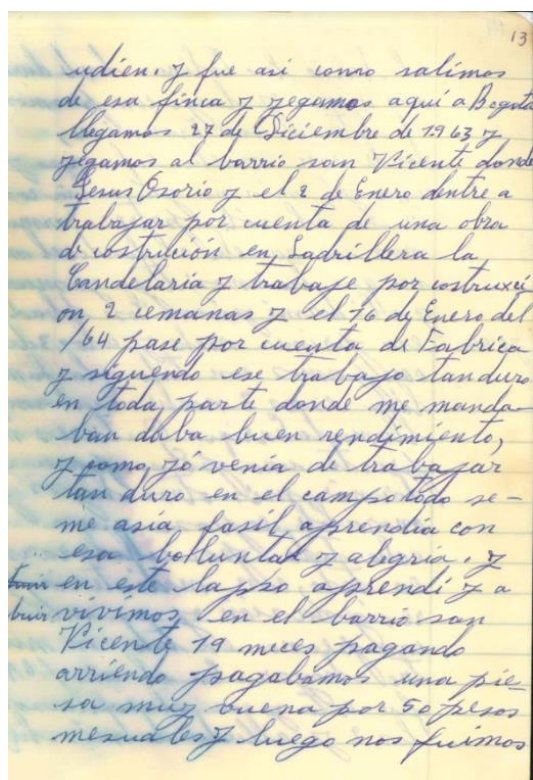 13
udien. y fue asi como salimos
de esa finca y yegamos aquí a Bogota
llegamos 27 de Diciembre de 1963 y
yegamos al barrio san Vicente donde
Jesus Osorio y el 2 de Enero dentre a
trabajar por cuenta de una obra
d costrución en Ladrillera la
Candelaria y trabaje por costruxci
on, 2 cemanas y el 16 de Enero del
/64 pase por cuenta de Fabrica
y siguendo ese trabajo tan duro
en toda parte donde me manda-
ban daba buen rendimiento,
y como yó venia de trabajar
tan duro en el campo todo se-
me asia fasil aprendia con
esa bolluntad y alegria. y
en este lapso aprendi y a
buir vivimos en el barrio san
Vicente 19 meces pagando
arriendo pagabamos una pie-
sa muy buena por 50 pesos
mesuales y luego nos fuimos